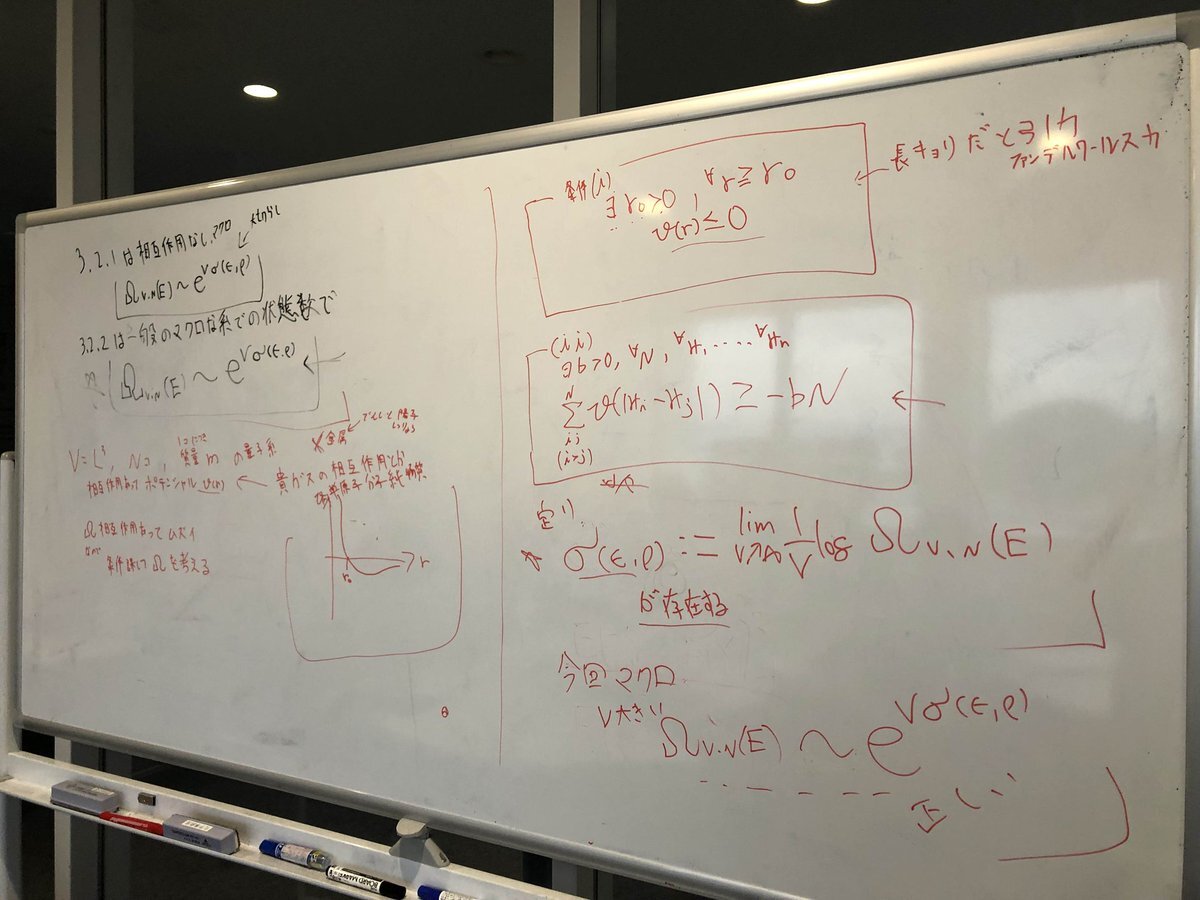 3.2.1は相互作用なし、マクロ
Ω_{V,N}(E) ~ e^{Vσ(ε,ρ)}
3.2.2は一般のマクロな系での状態数で
Ω_{V,N}(E) ~ e^{Vσ(ε,ρ)} ←
V=L³, Nコ, 1コにつき 質量 m の量子系
×金属 ←
相互作用あって ポテンシャル v(r) ← 貴ガスの相互作用とか
分子 物質
r₀ r
Ω 相互作用あって ムズイ
なので
条件課して Ω を考える
条件(i)
∃r₀>0, ∀r≧r₀
v(r)≦0
← 長キョリだと引力
ファンデルワールス力
(ii)
∃b>0, ∀N, ∀r₁, ‥‥ ∀rₙ
Σ^{N}_{i,j (i>j)} v(|rᵢ-rⱼ|) ≧ -bN ←
定リ
σ(ε,ρ) := lim_{V↗∞} 1/V log Ω_{V,N}(E)
が存在する
今回マクロ
V大きい
Ω_{V,N}(E) ~ e^{Vσ(ε,ρ)}
正しい